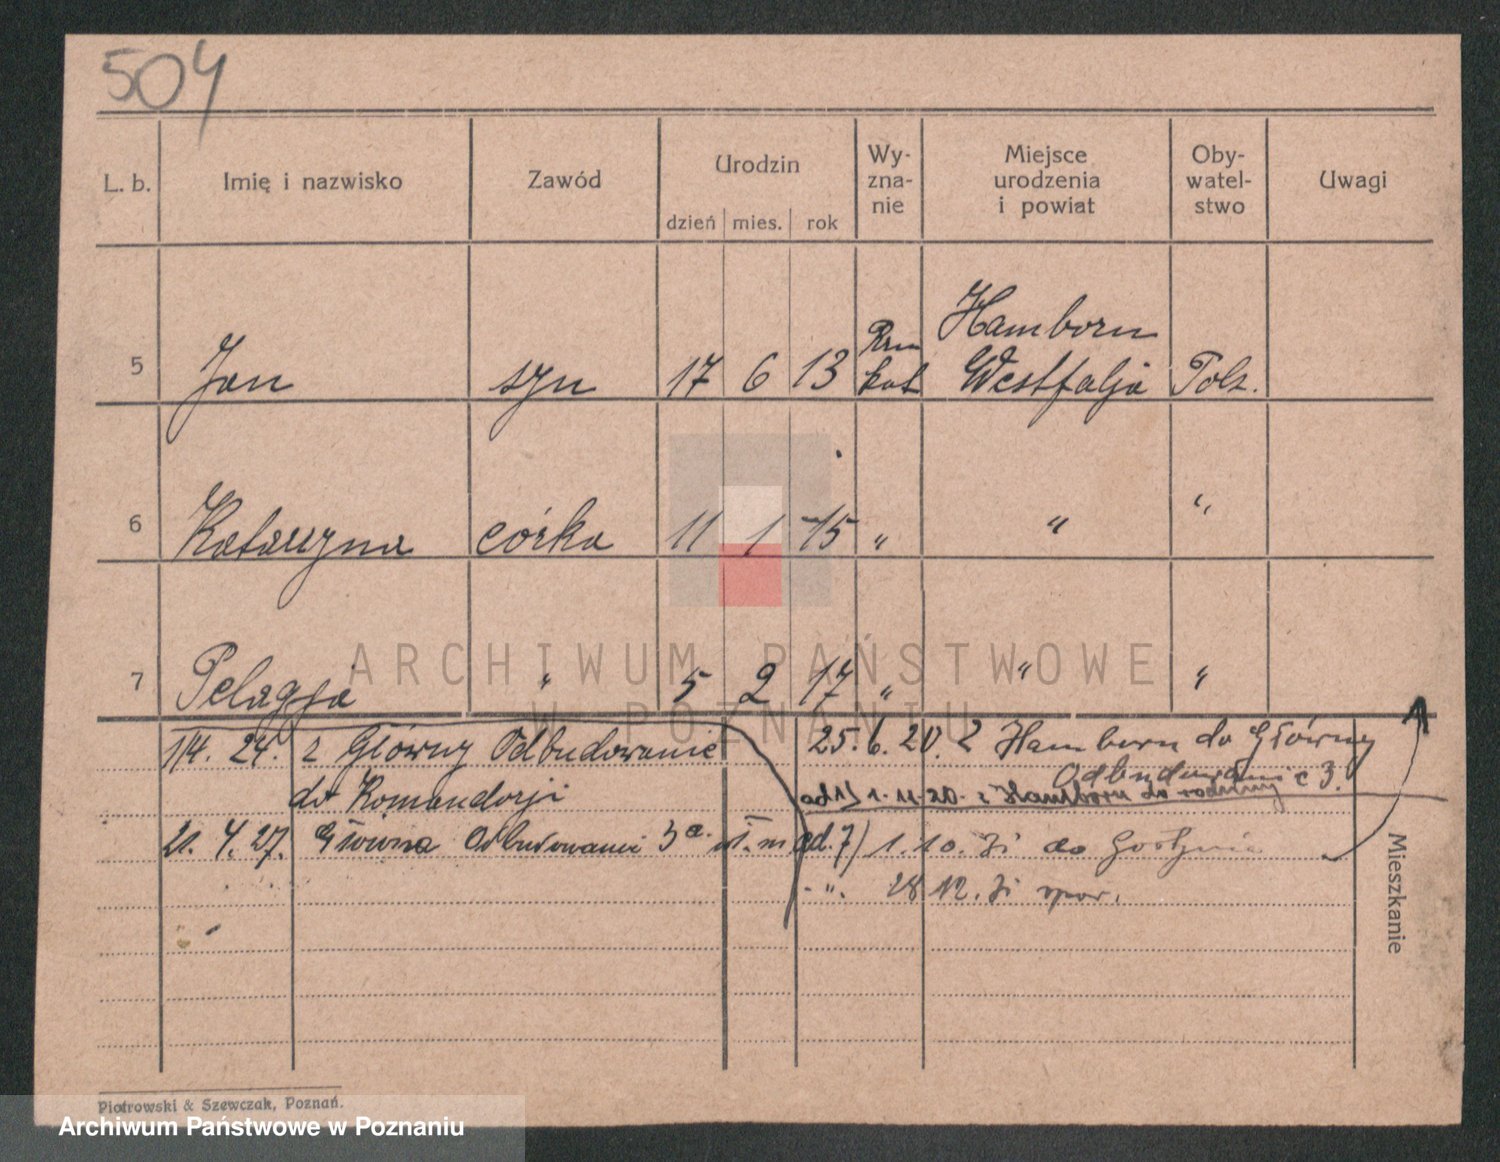 504
L. b. Imię i nazwisko Zawód Urodzin dzień mies. rok Wy-zna-nie Miejsce urodzenia i powiat Oby-watel-stwo Uwagi
Hamborn
5 Jan syn 17 6 13 Rzm kat Westfalja Pols.
6 Katarzyna córka 11 1 15 " " "
7 Pelagja " 5 2 17 " " "
1/4. 24. z Główny Odbudowanie
do Komandorji
21. 4. 27. Główna Odbudowanie 3a.
25. 6. 20. z Hamborn do Główny
Odbudowanie 3.
ad 1/ 1. 11. 20. z Hamborn do rodziny
ad. 7) 1. 10. 31 do Gostynia
" 28 12. 31 spor.
Mieszkanie
Piotrowski & Szewczak, Poznań.
ARCHIWUM PAŃSTWOWE
W POZNANIU
Archiwum Państwowe w Poznaniu